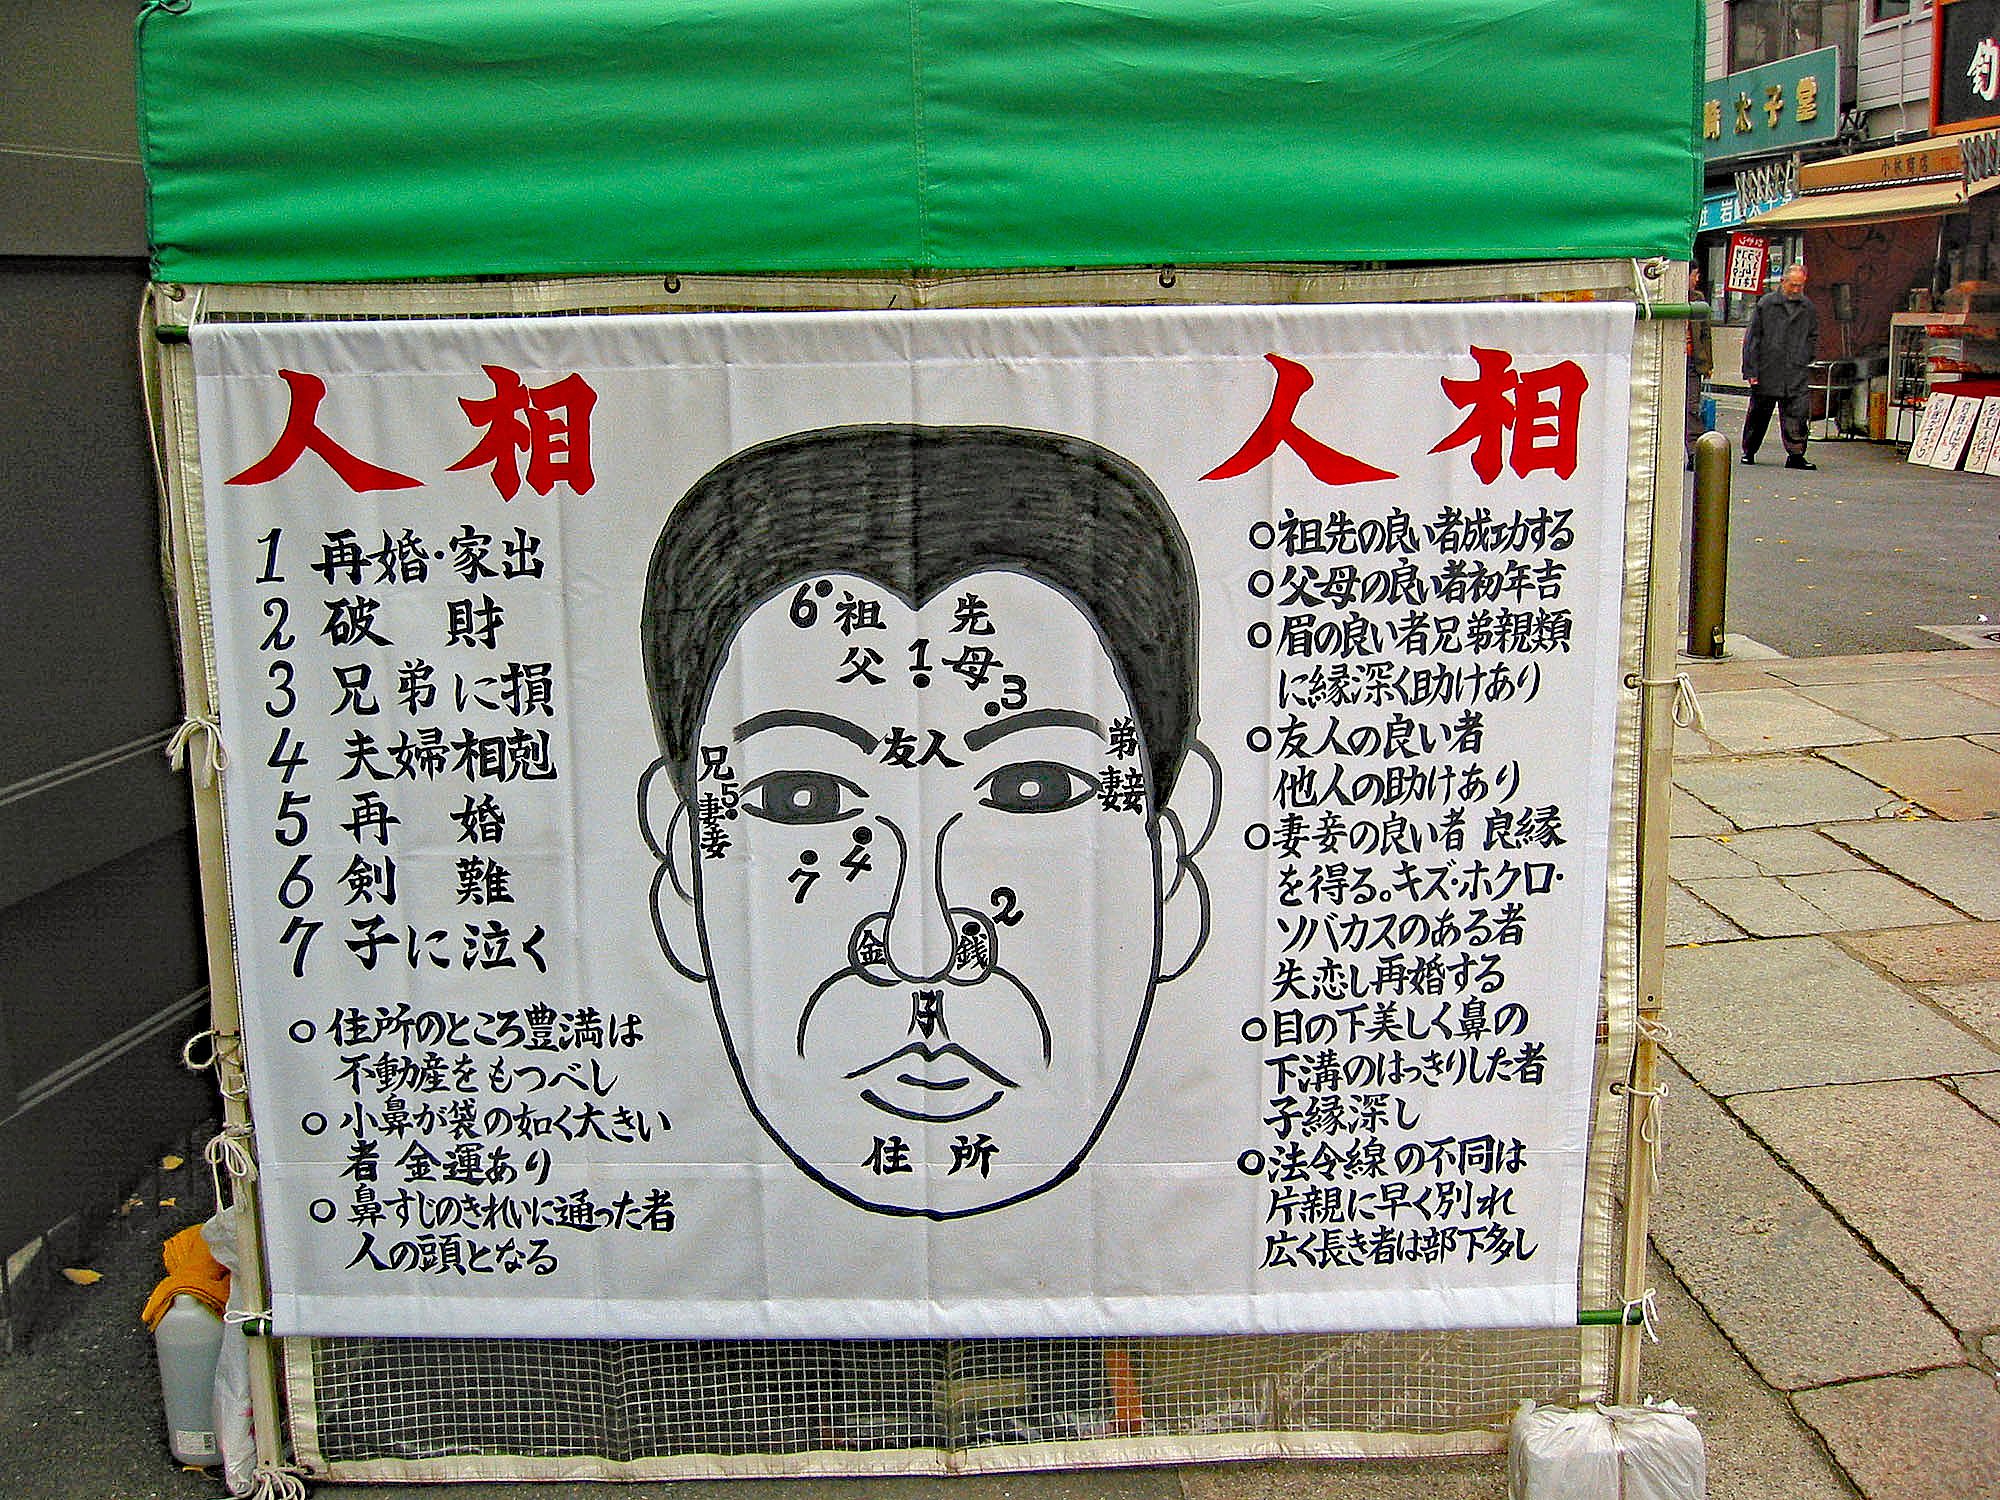 人相
1 再婚・家出
2 破財
3 兄弟に損
4 夫婦相剋
5 再婚
6 剣難
7 子に泣く
○住所のところ豊満は
不動産をもつべし
○小鼻が袋の如く大きい
者 金運あり
○鼻すじのきれいに通った者
人の頭となる
6 祖先
父 1 母
3
友人
兄 弟
5
妻妾 妻妾
4
7
2
金 銭
子
住所
人相
○祖先の良い者成功する
○父母の良い者初年吉
○眉の良い者兄弟親類
に縁深く助けあり
○友人の良い者
他人の助けあり
○妻妾の良い者 良縁
を得る。キズ・ホクロ・
ソバカスのある者
失恋し再婚する
○目の下美しく鼻の
下溝のはっきりした者
子縁深し
○法令線の不同は
片親に早く別れ
広く長き者は部下多し
太子堂
小林商店
釣